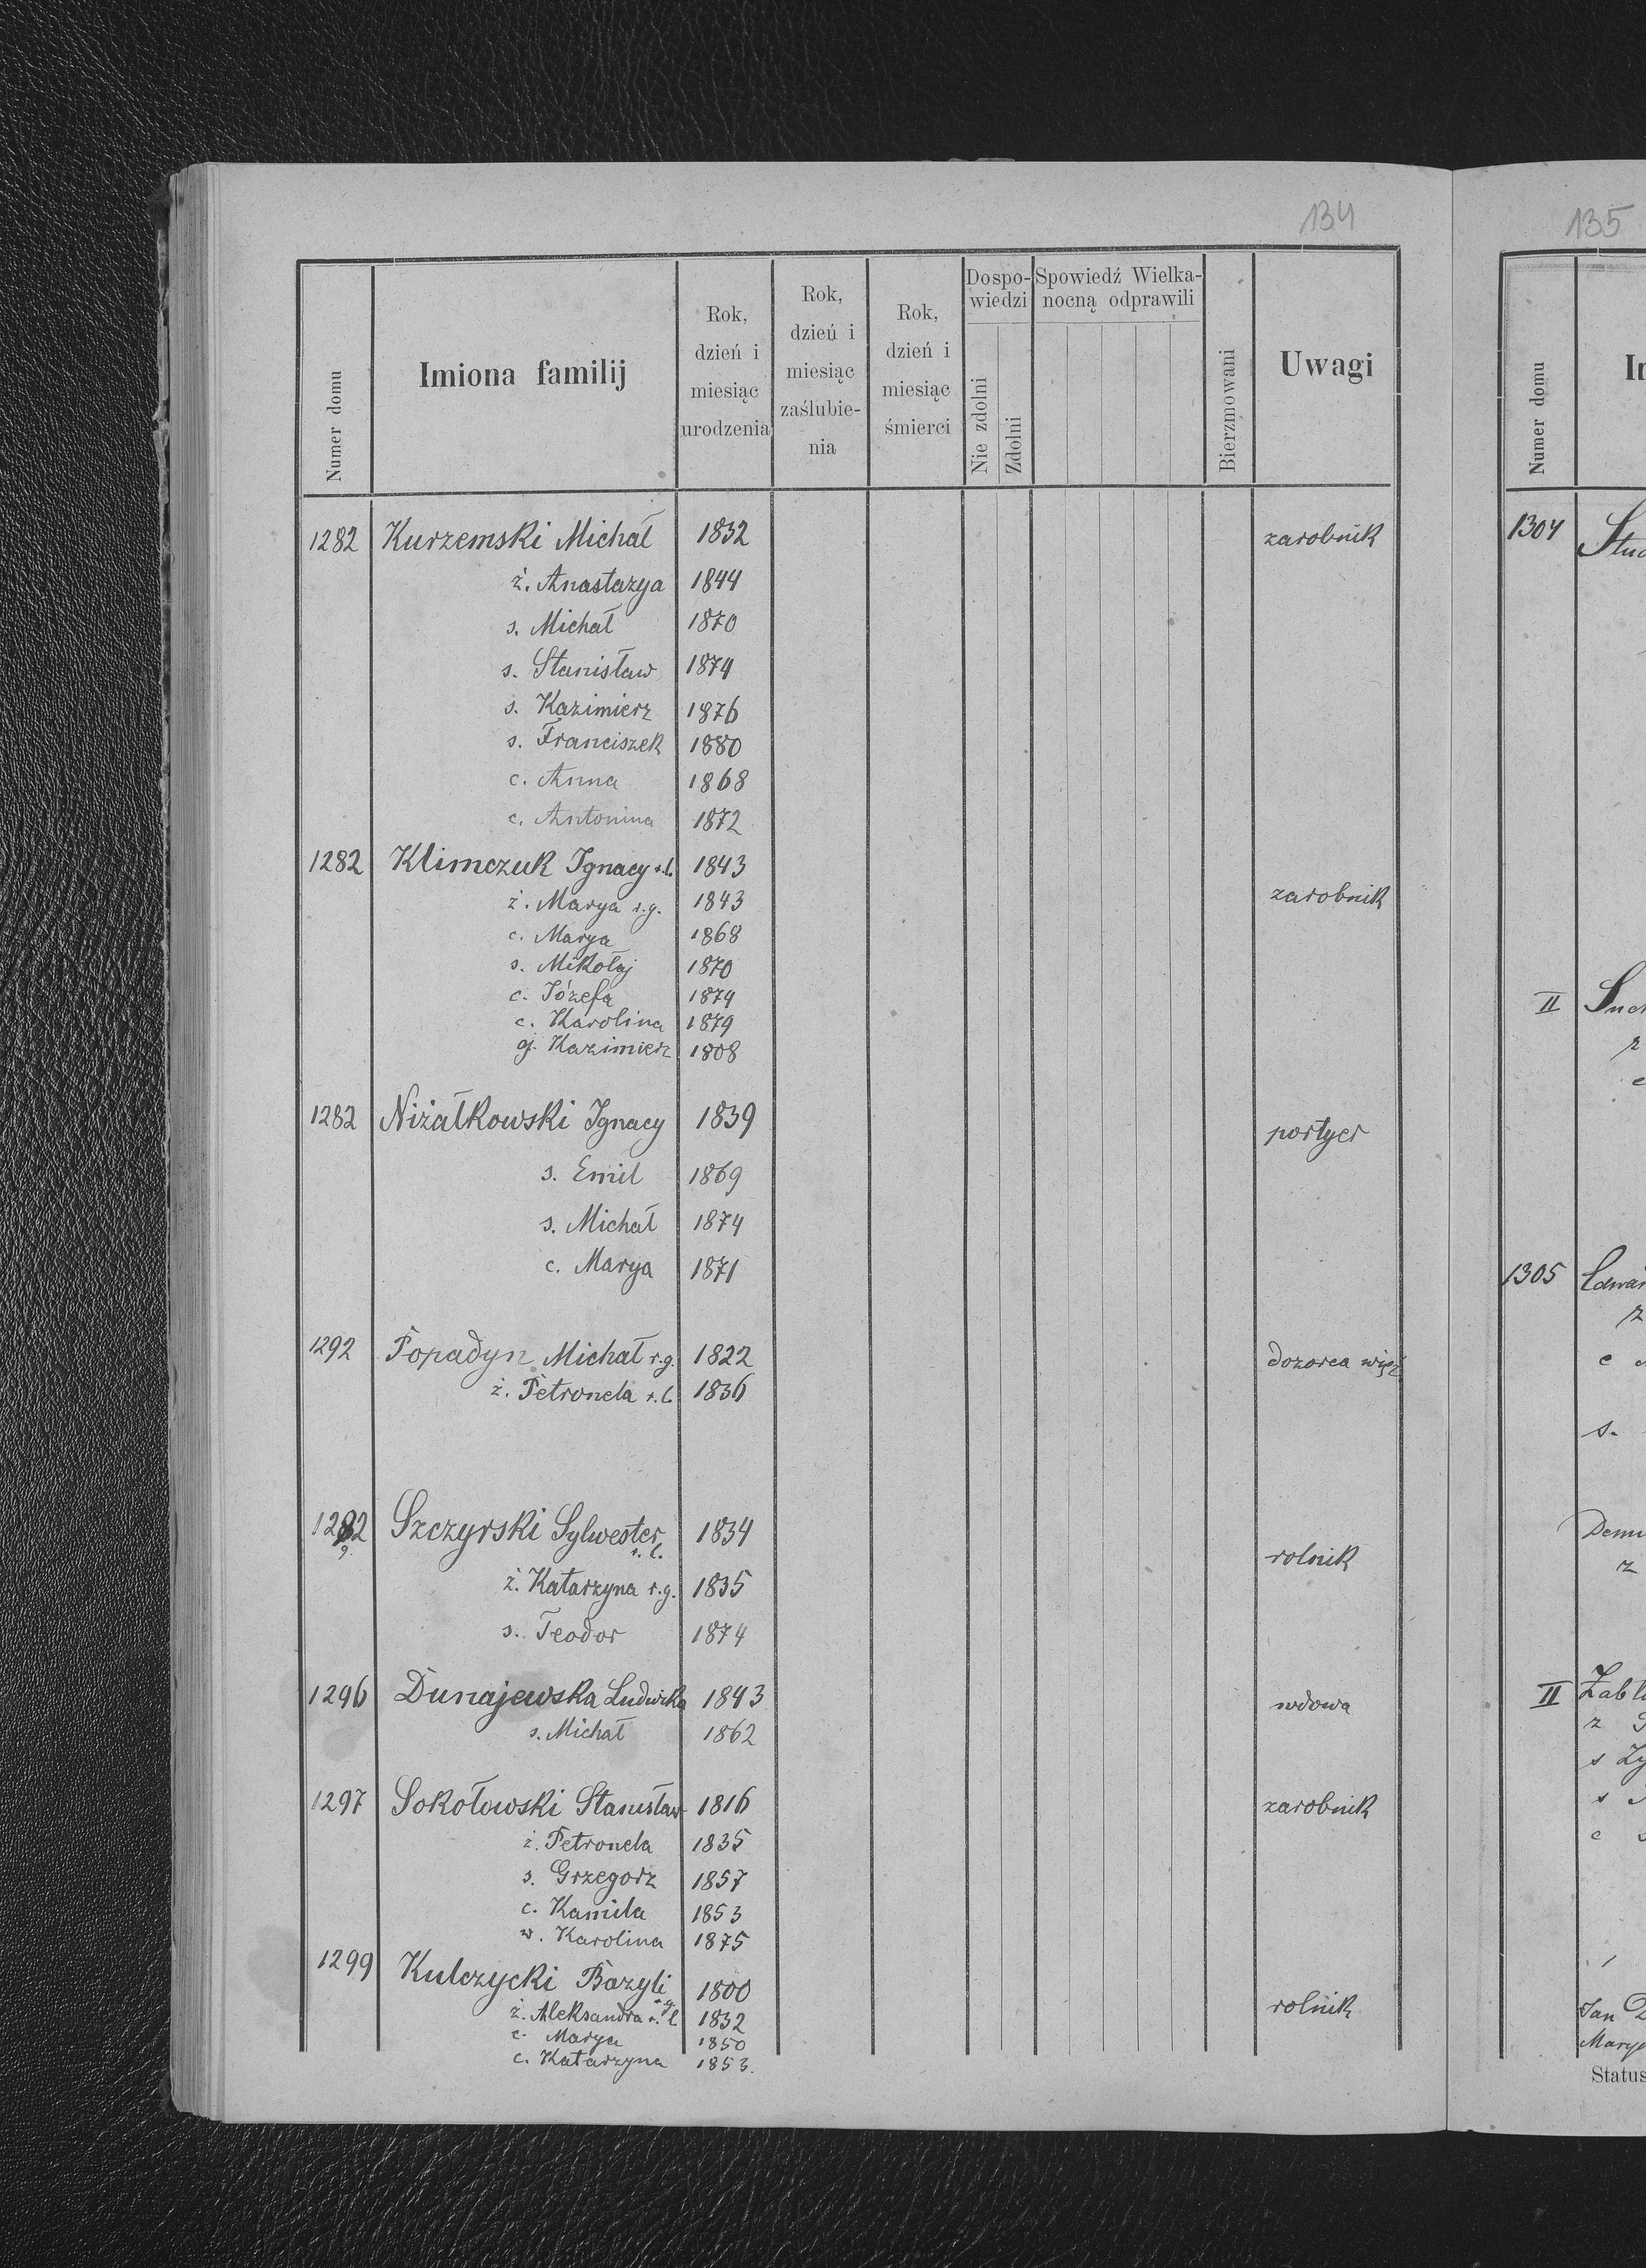 134
135
Numer domu
Imiona familij
Rok, dzień i miesiąc urodzenia
Rok, dzień i miesiąc zaślubie-nia
Rok, dzień i miesiąc śmierci
Dospo-wiedzi
Nie zdolni
Zdolni
Spowiedź Wielka-nocną odprawili
Bierzmowani
Uwagi
1282 Kurzemski Michał 1832 zarobnik
ż. Anastazya 1844
s. Michał 1870
s. Stanisław 1874
s. Kazimierz 1876
s. Franciszek 1880
c. Anna 1868
c. Antonina 1872
1282 Klimczuk Ignacy r.l. 1843
ż. Marya r.g. 1843 zarobnik
c. Marya 1868
s. Mikołaj 1870
c. Józefa 1874
c. Karolina 1879
oj. Kazimierz 1808
1282 Niżałkowski Ignacy 1839 portyer
s. Emil 1869
s. Michał 1874
c. Marya 1871
1292 Popadyn Michał r.g. 1822 dozorca więź
ż. Petronela r.l. 1836
1282 Szczyrski Sylwester 1834
9. r.l. rolnik
ż. Katarzyna r.g. 1835
s. Teodor 1874
1296 Dunajewska Ludwika 1843 wdowa
s. Michał 1862
1297 Sokołowski Stanisław 1816 zarobnik
ż. Petronela 1835
s. Grzegorz 1857
c. Kamila 1853
w. Karolina 1875
1299 Kulczycki Bazyli 1800
r.g. rolnik
ż. Aleksandra r.l. 1832
c. Marya 1850
c. Katarzyna 1853.
Numer domu
1304
II
1305
s.
II
Jan
Status